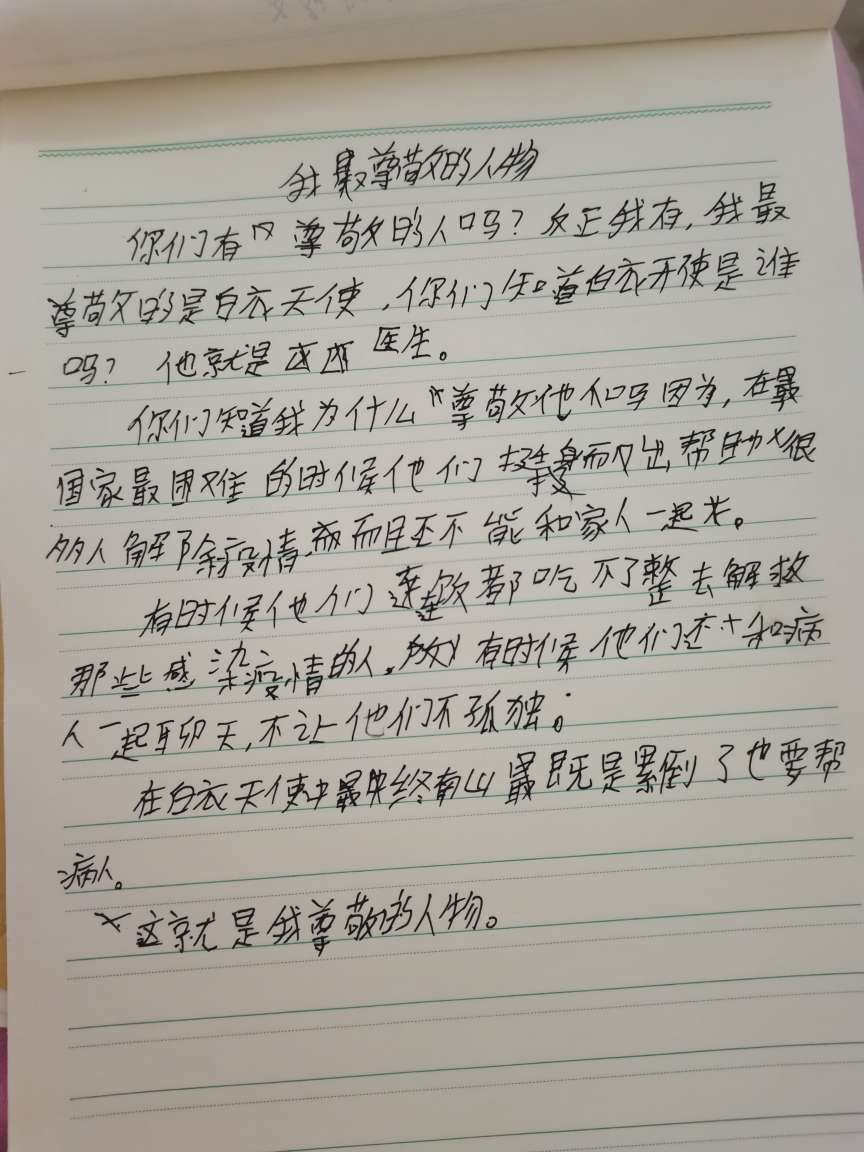 我最尊敬的人物
你们有尊敬的人吗？反正我有，我最
尊敬的是白衣天使，你们知道白衣天使是谁
吗？他就是医生。
你们知道我为什么尊敬他们吗因为，在最
国家最困难的时候他们挺身而出帮助很
多人解除疫情，而且还不能和家人一起。
有时候他们连饭都吃不了整去解救
那些感染疫情的人。有时候他们还和病
人一起聊天，不让他们不孤独。
在白衣天使中最终南山最既是累倒了也要帮
病人。
这就是我尊敬的人物。